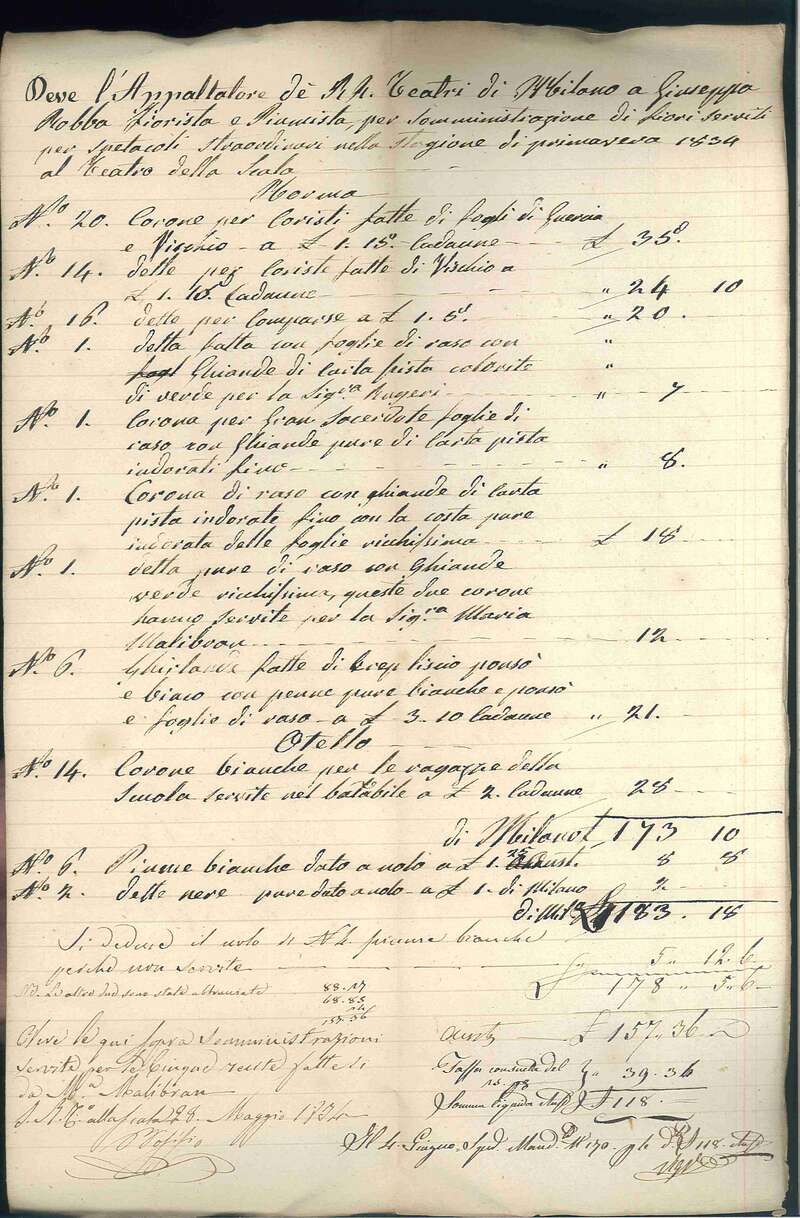 Deve l'Appaltatore dè RR. Teatri di Milano a Giuseppa
Robba Fiorista e Piumista, per somministrazione di fiori serviti
per spetacoli straordinari nella stagione di primavera 1834
al Teatro della Scala
Norma
N.o 20. Corone per Coristi fatte di fogli di Guercia
e Vischio - a £ 1. 15s. Cadaune £ 35s.
N.o 14. dette per Coriste fatte di Vischio a
£ 1. 15s. Cadaune " 24 10
N.o 16. dette per Comparse a £ 1. 5s. " 20.
N.o 1. detta fatta con foglie di raso con "
fogl Ghiande di Carta pista colorite "
di verde per la Sig.ra Rugeri " 7
N.o 1. Corona per Gran Sacerdote foglie di
raso con Ghiande pure di Carta pista
indorati fino " 8.
N.o 1. Corona di raso con ghiande di Carta
pista indorate fino con la costa pure
indorata delle foglie richissima £ 18
N.o 1. detta pure di raso con Ghiande
verde richissima, queste due corone
hanno servite per la Sig.ra Maria
Malibran 12
N.o 6. Ghirlande fatte di Crep liscio ponsò
e bianco con penne pure bianche e ponsò
e foglie di raso - a £ 3-10 Cadaune " 21.
Otello
N.o 14. Corone bianche per le ragazze della
Scuola servite nel batabile a £ 2. Cadaune 28
di Milano £ 173 10
N.o 6. Piume bianche dato a nolo a £ 1. 25 Aust. 8 8
N.o 2. dette nere pure dato a nolo - a £ 1. di Milano 2
di Mil.o £ 183. 18
Si deduce il nolo di N 4. piume bianche
perchè non servite " 5 " 12.6
N.B. Le altre due sono state adoperate 88.17 £ 178 " 5.6
68.85
Oltre le qui sopra somministrazioni Aust. £ 157.36
servite per le Cinque recite fatte di
Tassa consueta del
25.% " 39.36
da M.a Malibran
Somma liquida Aust. £ 118.
I. R. T.o alla Scala 28. Maggio 1834
Il 4. Giugno. Sped. Mand. N 170. p le £ 118. Aust.